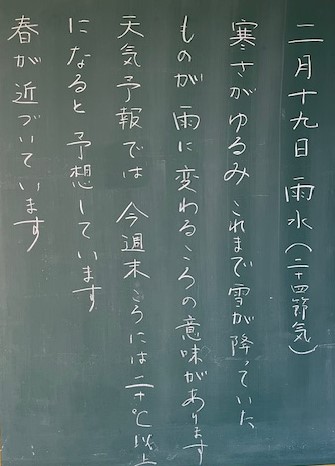 二月十九日 雨水(二十四節気)
寒さがゆるみ これまで雪が降っていた
ものが 雨に変わるころの意味があります
天気予報では 今週末ころには 二十℃以上
になると 予想しています
春が近づいています